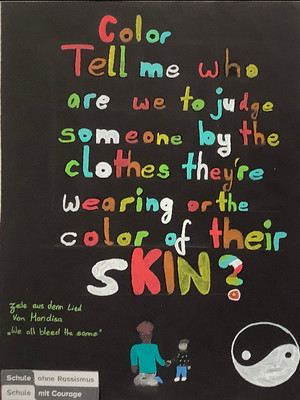 Color
Tell me who
are we to judge
someone by the
clothes they're
wearing or the
color of their
SKIN?
Zeile aus dem Lied
Von Mandisa
„We all bleed the same"
Schule ohne Rassismus
Schule mit Courage